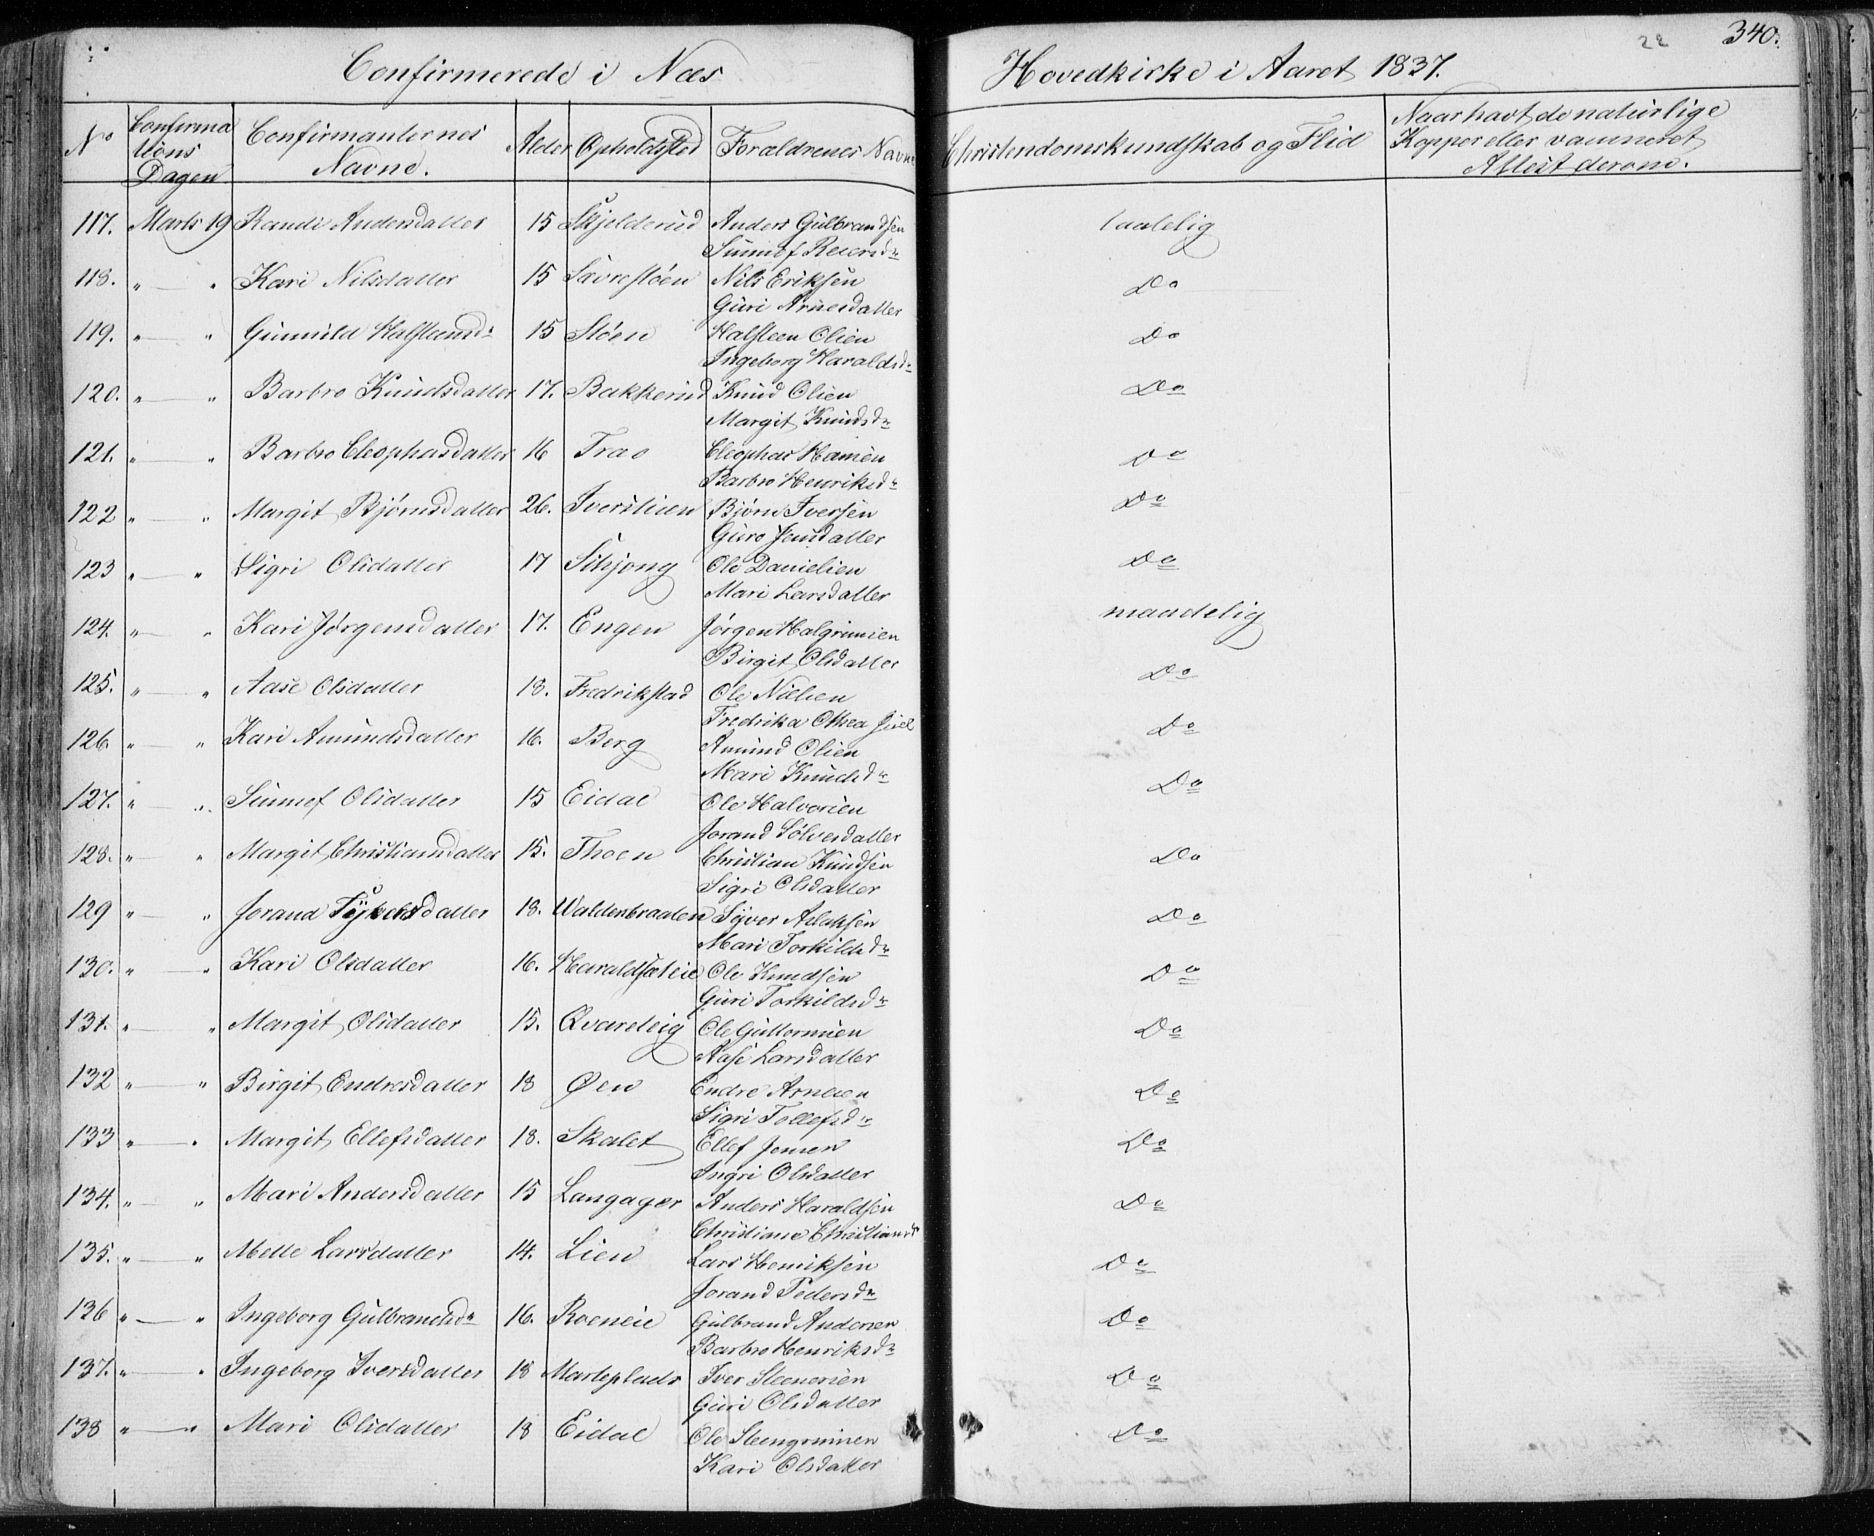 Confirmerede i Næs Hovedkirke i Aaret 1837. 340.
No Confirmationsdagen Confirmanternes Navne. Alder Opholdsted Forældrenes Navne Christendomskundskab og Flid Naar havt de naturlige Kopper eller vaccineret Attest derom.
117. Marts 19 Randi Andersdatter 15 Skjelderud Anders Gulbrandsen taalelig
Sunnef Reiersdr
118. " — " Kari Nilsdatter 15 Sævrestøen Nils Eriksen Do
Guri Arnesdatter
119. " — " Gunnild Halsteensdr 15 Støen Halsteen Olsen Do
Ingeborg Haraldsdr
120. " — " Barbro Knudsdatter 17. Bakkerud Knud Olsen Do
Margit Knudsdr
121. " — " Barbro Cleophasdatter 16 Trao Cleophas Hansen Do
Barbro Henriksdr
122 " — " Margit Bjørnsdatter 26. Iverslien Bjørn Iversen Do
Guro Jonsdatter
123 " — " Sigri Olsdatter 17 Ole Danielsen Do
Mari Larsdatter
124. " — " Kari Jørgensdatter 17. Engen Jørgen Halgrimsen maadelig
Birgit Olsdatter
125. " — " Aase Olsdatter 18. Fredrikstad Ole Nielsen Do
Fredrika Othea
126. " — " Kari Amundsdatter 16. Berg Amund Olsen Do
Mari Knudsdr
127. " — " Sunnef Olsdatter 15 Eidal Ole Halvorsen Do
Jorand Sølvesdatter
128. " — " Margit Christiansdatter 15. Thoen Christian Knudsen Do
Sigri Olsdatter
129 " — " Jorand datter 18. Waldersbraaten Syver Aslaksen Do
Mari Torkildsdr
130. " — " Kari Olsdatter 16. Haraldsæteie Ole Knudsen Do
Guri Torkildsdr
131. " — " Margit Olsdatter 15. Qvareteig Ole Guttormsen Do
Aase Larsdatter
132 " — " Birgit Endresdatter 18 Øen Endre Arnesen Do
Sigri Tollefsdr
133 " — " Margit Ellefsdatter 18. Skalet Ellef Jonsen Do
Ingri Olsdatter
134. " — " Mari Andersdatter 15 Langager Anders Haraldsen Do
Christiane Christiansdr
135. " — " Mette Larsdatter 14. Lien Lars Henriksen Do
Jorand Pedersdr
136 " — " Ingeborg Gulbrandsdr 16. Roeneie Gulbrand Andersen Do
Barbro Henriksdr
137. " — " Ingeborg Iversdatter 18 Marteplads Iver Steenersen Do
Guri Olsdatter
138 " — " Mari Olsdatter 18 Eidal Ole Steengrimsen Do
Kari Olsdatter